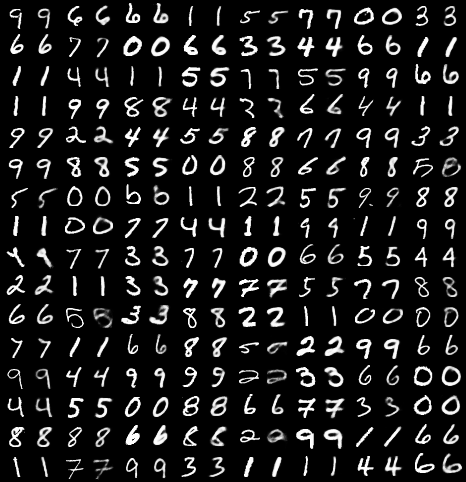 9 9 6 6 6 6 1 1 5 5 7 7 0 0 3 3
6 6 7 7 0 0 6 6 3 3 4 4 6 6 1 1
1 1 4 4 1 1 5 5 7 7 5 5 9 9 6 6
1 1 9 9 8 8 4 4 6 6 4 4 1 1
9 9 2 2 4 4 5 5 8 8 7 7 9 9 3 3
9 9 8 8 5 5 0 0 8 8 6 6 8 8 5 8
5 5 0 0 6 6 1 1 2 2 5 5 9 9 8 8
1 1 0 0 7 7 4 4 1 1 9 9 1 1 9 9
9 7 7 3 3 7 7 0 0 6 6 5 5 4 4
2 2 1 1 3 3 7 7 7 7 5 5 7 7 8 8
6 6 5 8 3 3 8 8 2 2 1 1 0 0 0 0
7 7 1 1 6 6 8 8 5 2 2 9 9 6 6
9 9 4 4 9 9 9 9 2 2 3 3 6 6 0 0
4 4 5 5 0 0 8 8 6 6 7 7 3 3 0 0
8 8 8 8 6 6 8 8 2 2 9 9 1 1 6 6
1 1 7 7 9 9 3 3 1 1 1 1 4 4 6 6